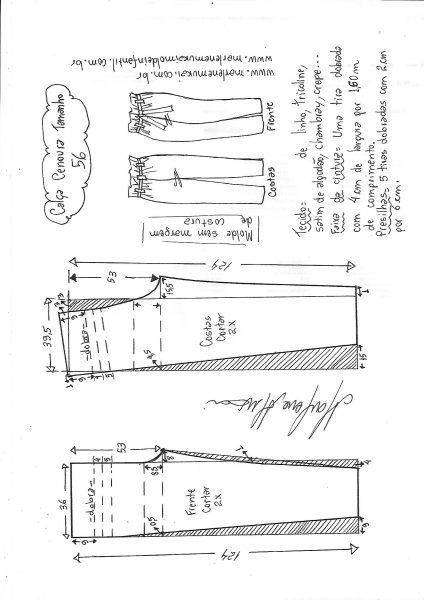 Calça Cenoura Tamanho
56
www.marlenemukai.com.br
www.marlenemukaimoldeinfantil.com.br
Frente
Costas
Molde sem margem
de costura
Tecido: de linho, tricoline,
satim de algodão, chambray, crepe...
Faixa da cintura: Uma tira dobrada
com 4 cm de largura por 1,60m
de comprimento.
Presilhas: 5 tiras dobradas com 2cm
por 6 cm.
124
53
15,5
39,5
dobra
Costas
Cortar
2x
15
1
Marlene Mukai
53
36
dobra
Frente
Cortar
2x
8
4
9
124